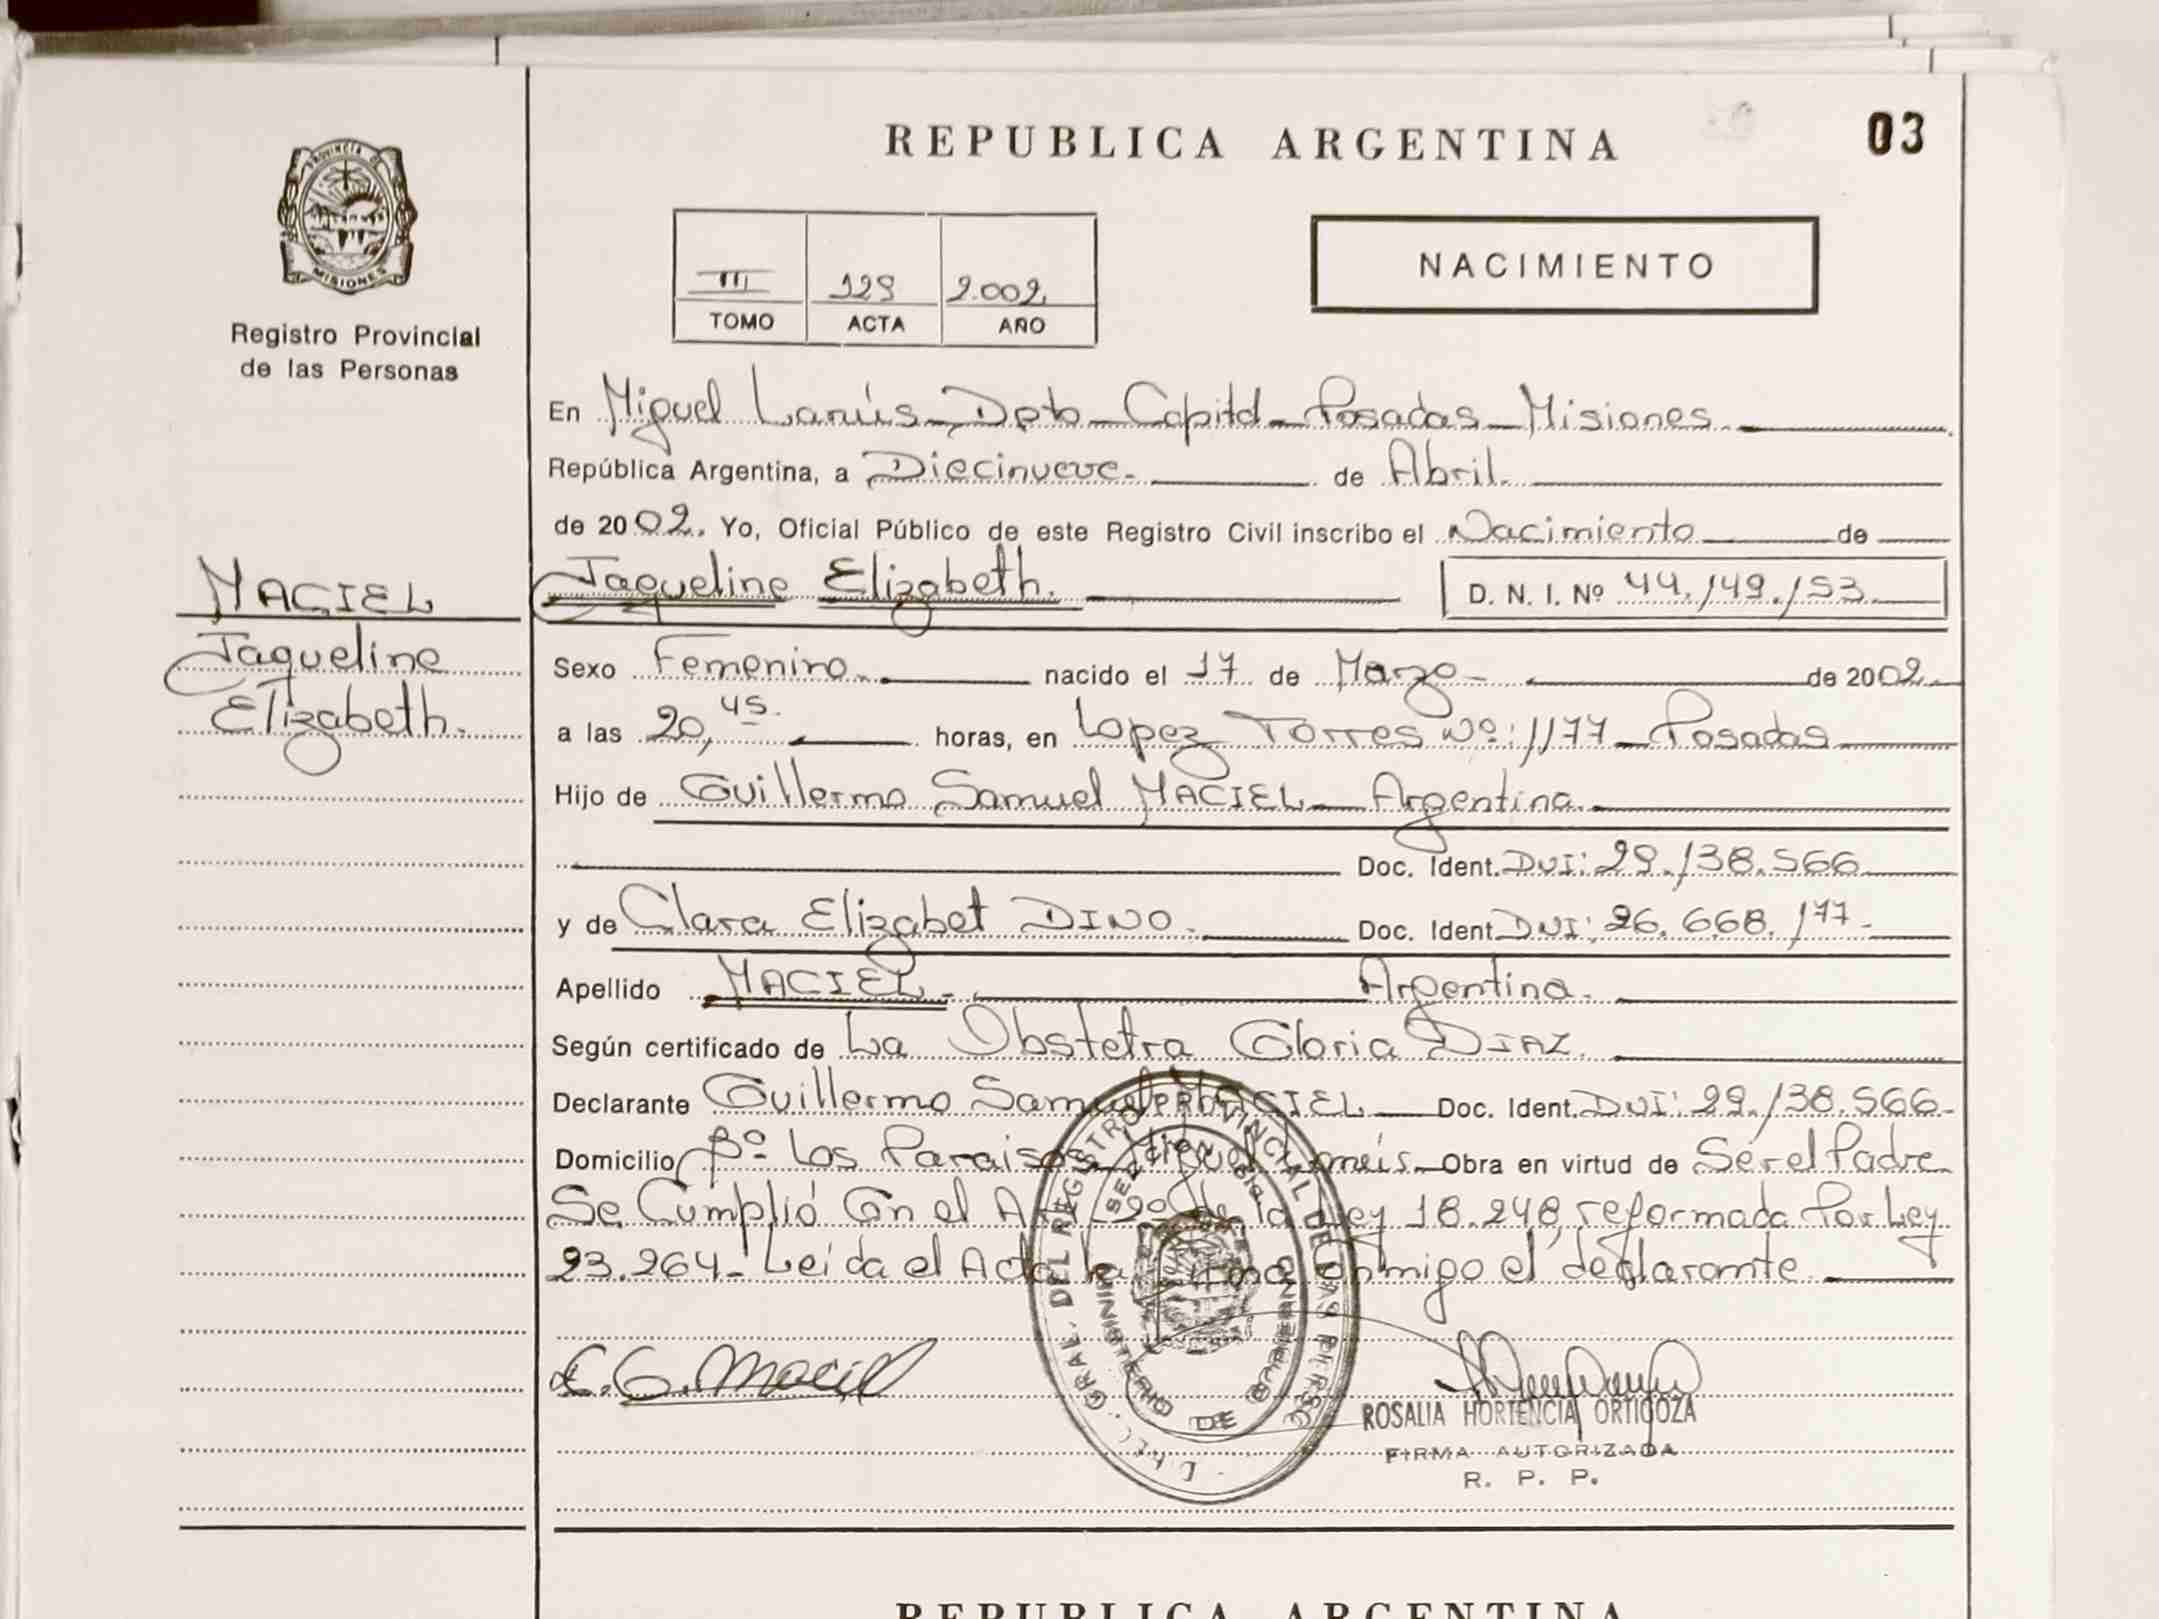 REPUBLICA ARGENTINA
03
PROVINCIA DE
MISIONES
Registro Provincial
de las Personas
III 129 2.002
TOMO ACTA AÑO
NACIMIENTO
En Miguel Lanús - Dpto - Capital - Posadas - Misiones
República Argentina, a Diecinueve de Abril
de 2002. Yo, Oficial Público de este Registro Civil inscribo el Nacimiento de
Jaqueline Elizabeth. D. N. I. Nº 44.149.153
MACIEL
Jaqueline
Elizabeth.
Sexo Femenino nacido el 17 de Marzo de 2002
a las 20,45 horas, en Lopez Torres Nº: 1177 - Posadas
Hijo de Guillermo Samuel MACIEL - Argentina
Doc. Ident. DNI: 29.138.566
y de Clara Elizabet DINO. Doc. Ident. DNI: 26.668.177
Apellido MACIEL - Argentina.
Según certificado de La Obstetra Gloria DIAZ.
Declarante Guillermo Samuel MACIEL Doc. Ident. DNI: 29.138.566
Domicilio Bº Los Paraisos Miguel Lanús - Obra en virtud de Ser el Padre
Se Cumplió Con el Art de la Ley 18.248, reformada Por Ley
23.264 - Leída el Acta la firma Conmigo el declarante
DIREC. GRAL. DEL REGISTRO PROVINCIAL DE LAS PERSO
DE
E. G. Maciel
ROSALIA HORTENCIA ORTIGOZA
FIRMA AUTORIZADA
R. P. P.
REPUBLICA ARGENTINA